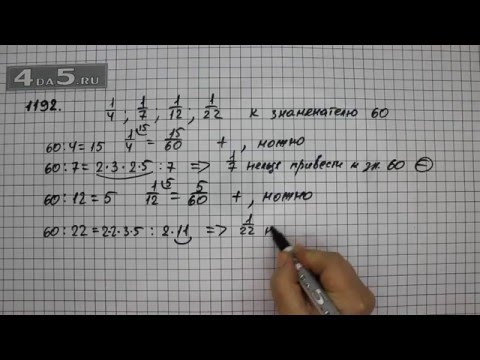 4DA5.RU
1192. 1/4 ; 1/7 ; 1/12 ; 1/22 к знаменателю 60
60:4=15 1/4^15 = 15/60 + , можно
60:7=2·3·2·5:7 => 1/7 нельзя привести к зн. 60 ⊖
60:12=5 1/12^5 = 5/60 + , можно
60:22=2·2·3·5 : 2·11 => 1/22 н